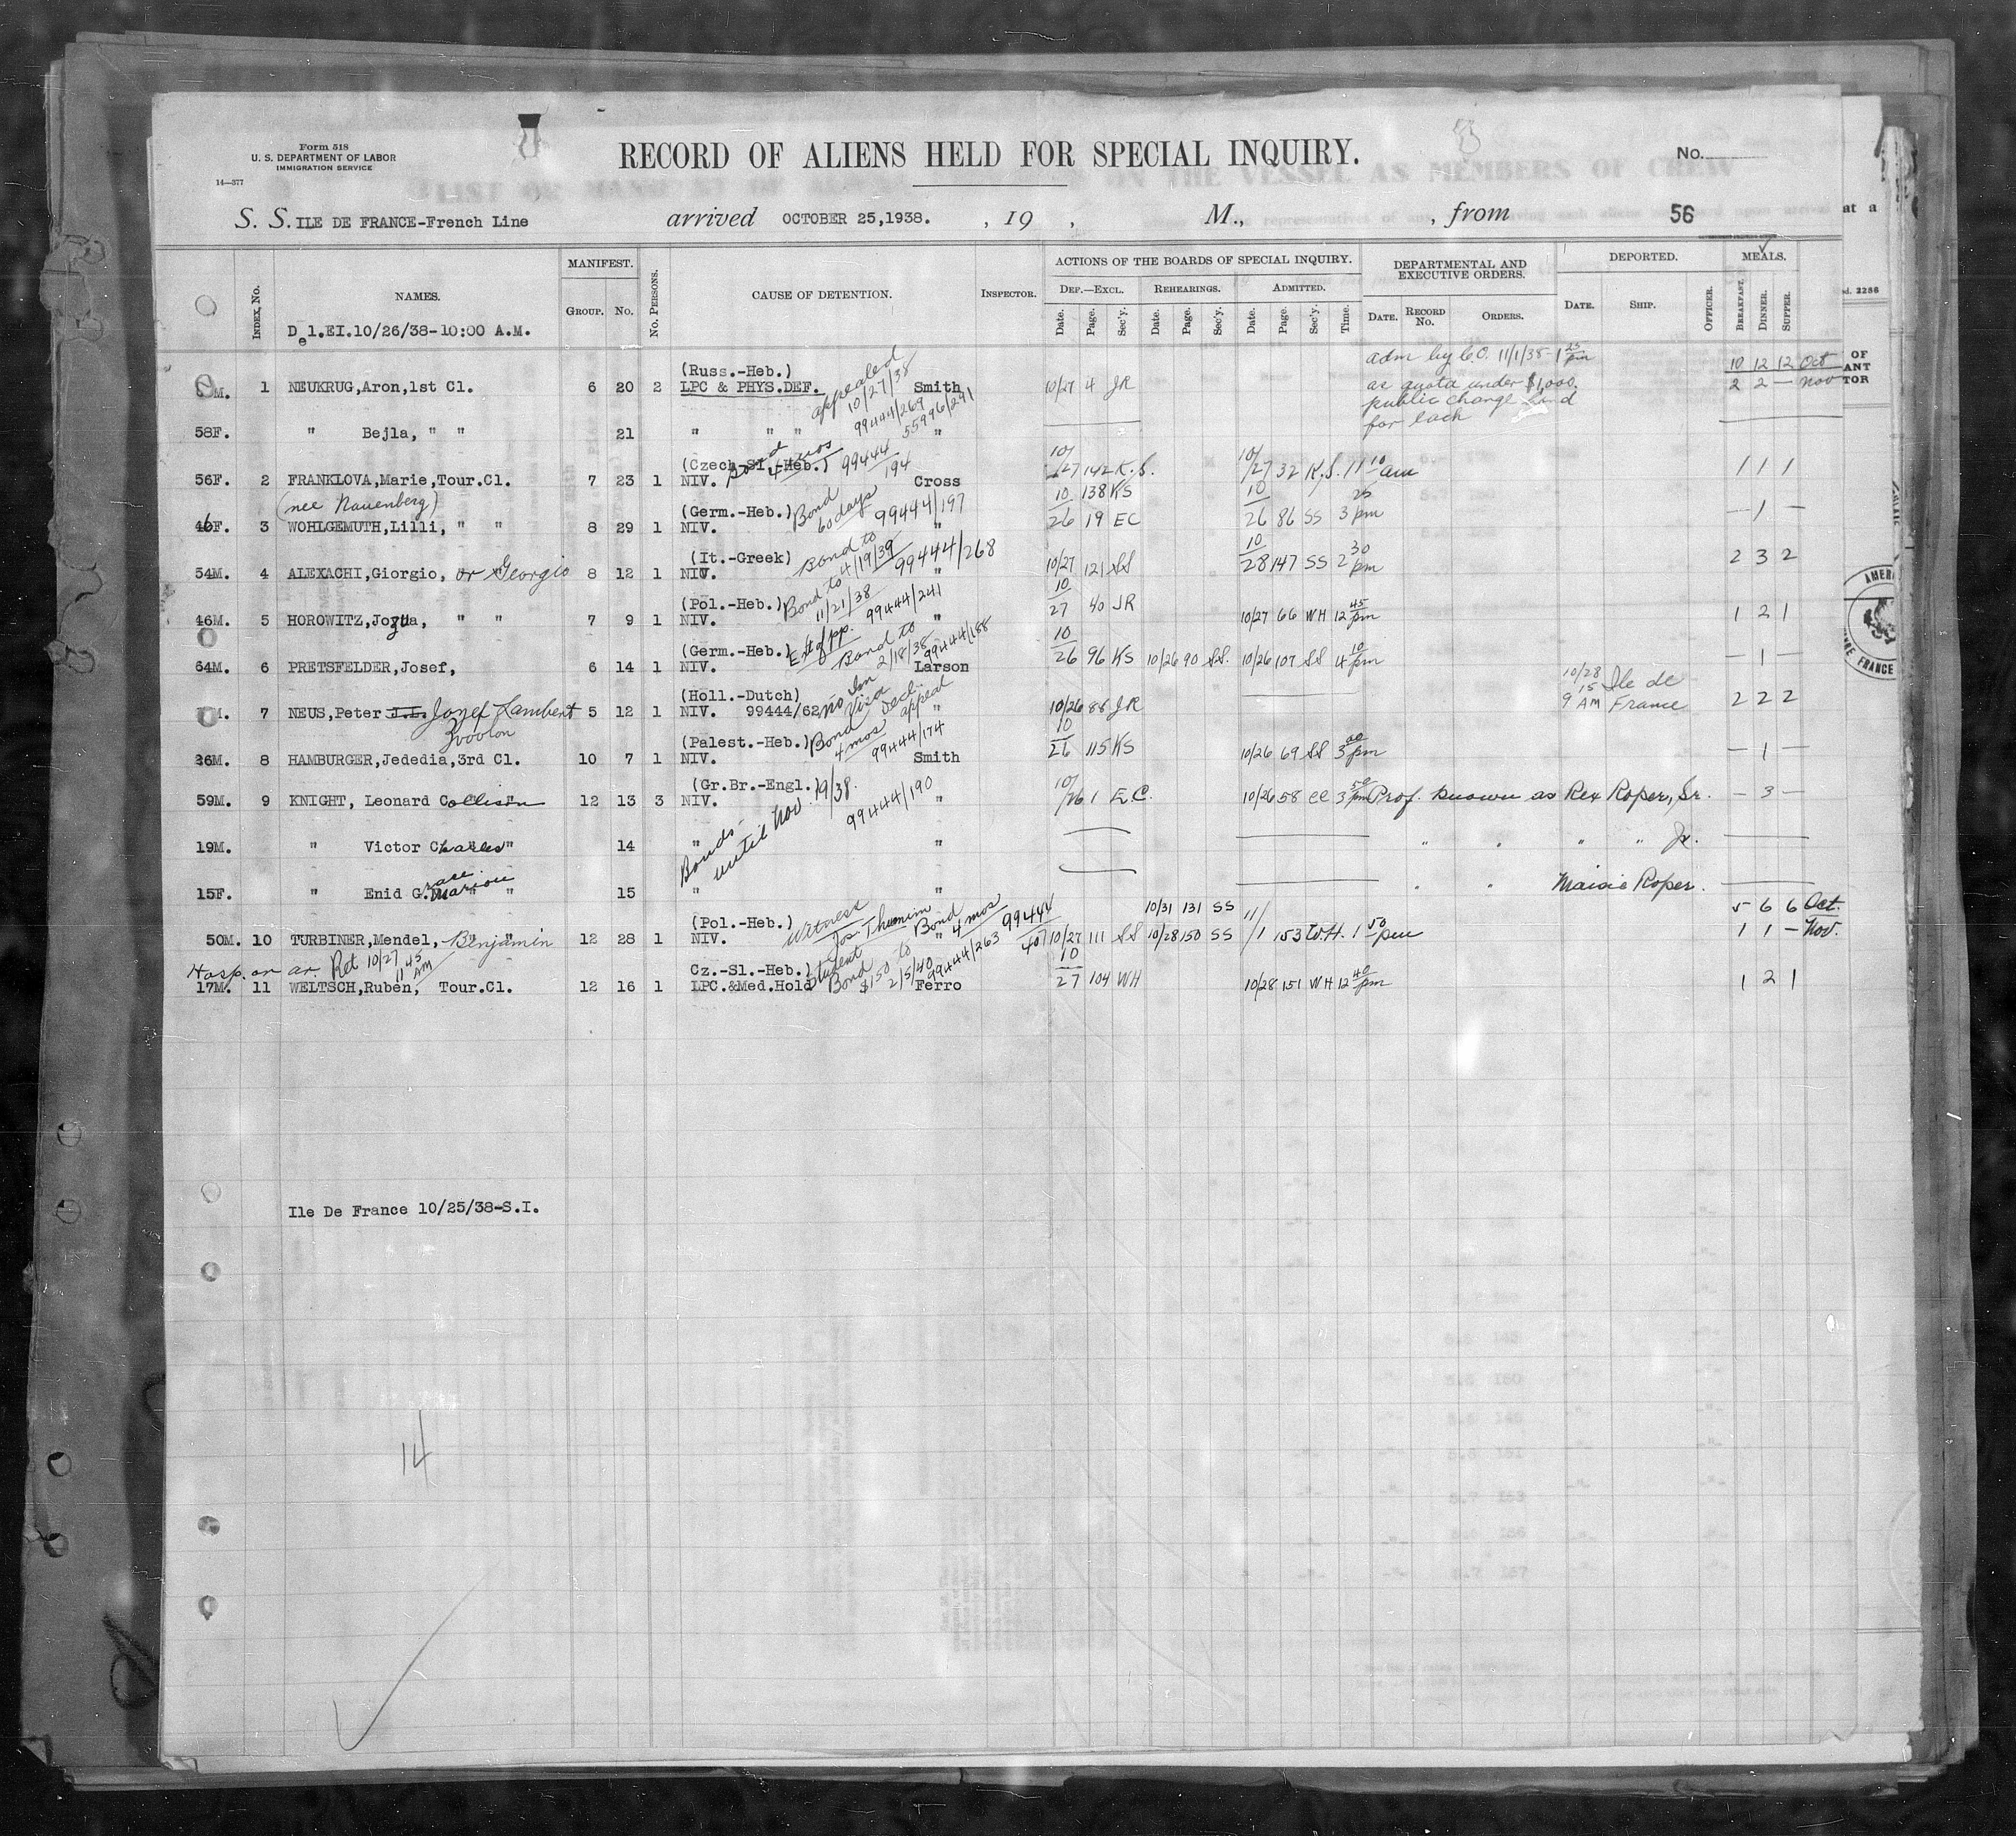 Form 518
U. S. DEPARTMENT OF LABOR
IMMIGRATION SERVICE
14—377
RECORD OF ALIENS HELD FOR SPECIAL INQUIRY.
No.
S. S. ILE DE FRANCE-French Line arrived OCTOBER 25,1938. , 19 , M., , from 56 at a
INDEX, No. NAMES. MANIFEST. GROUP. No. No. PERSONS. CAUSE OF DETENTION. INSPECTOR. ACTIONS OF THE BOARDS OF SPECIAL INQUIRY. DEPARTMENTAL AND EXECUTIVE ORDERS. DEPORTED. MEALS.
DEF.—EXCL. REHEARINGS. ADMITTED.
Date. Page. Sec'y. Date. Page. Sec'y. Date. Page. Sec'y. Time. DATE. RECORD No. ORDERS. DATE. SHIP. OFFICER. BREAKFAST. DINNER. SUPPER.
Del.EI.10/26/38-10:00 A.M.
d. 2286
(Russ.-Heb.) appealed 10/27/38 adm by C.O. 11/1/38 - 1 25 pm 10 12 12 Oct
M. 1 NEUKRUG,Aron,1st Cl. 6 20 2 LPC & PHYS.DEF. Smith 10/27 4 JR as quota under $1,000. 2 2 — Nov
99444/269 55996/291 public charge for each
58F. " Bejla, " " 21 " " " "
(Czech-Sl.-Heb.) 4 mos 99444/194
56F. 2 FRANKLOVA,Marie,Tour.Cl. 7 23 1 NIV. Cross 10/27 142 K.S. 10/27 32 K.S. 11 10 am 1 1 1
(nee Nauenberg)
(Germ.-Heb.) Bond 60 days 99444/197 10 138 KS
46F. 3 WOHLGEMUTH,Lilli, " " 8 29 1 NIV. " 10/26 19 EC 10/26 86 SS 3 25 pm — 1 —
(It.-Greek) Bond to 4/19/39 99444/268
54M. 4 ALEXACHI,Giorgio, or Georgio 8 12 1 NIV. " 10/27 121 SS 10/28 147 SS 2 30 pm 2 3 2
(Pol.-Heb.) Bond to 11/21/38 99444/241
46M. 5 HOROWITZ, " " 7 9 1 NIV. " 10/27 40 JR 10/27 66 WH 12 45 pm 1 2 1
(Germ.-Heb.) Bond to 2/18/38 99444/188
64M. 6 PRETSFELDER,Josef, 6 14 1 NIV. Larson 10/26 96 KS 10/26 90 SS. 10/26 107 SS 4 10 pm — 1 —
(Holl.-Dutch) no Visa decl. appeal 10/28 15 9 AM Ile de France
M. 7 NEUS,Peter J.L. Jozef Lambert 5 12 1 NIV. 99444/62 " 10/26 88 JR 2 2 2
(Palest.-Heb.) Bond 4 mos 99444/174
26M. 8 HAMBURGER,Jededia,3rd Cl. 10 7 1 NIV. Smith 10/26 115 KS 10/26 69 SS 3 00 pm — 1 —
(Gr.Br.-Engl.) Bonds until Nov. 19/38. 99444/190
59M. 9 KNIGHT, Leonard Collison 12 13 3 NIV. " 10/26 1 E.C. 10/26 58 CC 3 50 pm Prof. known as Rex Roper, Sr. — 3 —
19M. " Victor Charles " 14 " " " " " " Jr.
15F. " Enid Grace Marion " 15 " " " " Maisie Roper.
(Pol.-Heb.) Witness Jos. Bond 4 mos 99444/407 10/31 131 SS 5 6 6 Oct.
50M. 10 TURBINER,Mendel, Benjamin " 12 28 1 NIV. " 10/27 111 SS 10/28 150 SS 11/1 153 W.H. 1 50 pm 1 1 — Nov.
Hosp. on ar. Ret 10/27 11 45 AM
Cz.-Sl.-Heb.) Student Bond $150 to 2/5/40 99444/263
17M. 11 WELTSCH,Ruben, Tour.Cl. 12 16 1 LPC.&Med.Hold Ferro 10/27 104 WH 10/28 151 WH 12 40 pm 1 2 1
Ile De France 10/25/38-S.I.
14